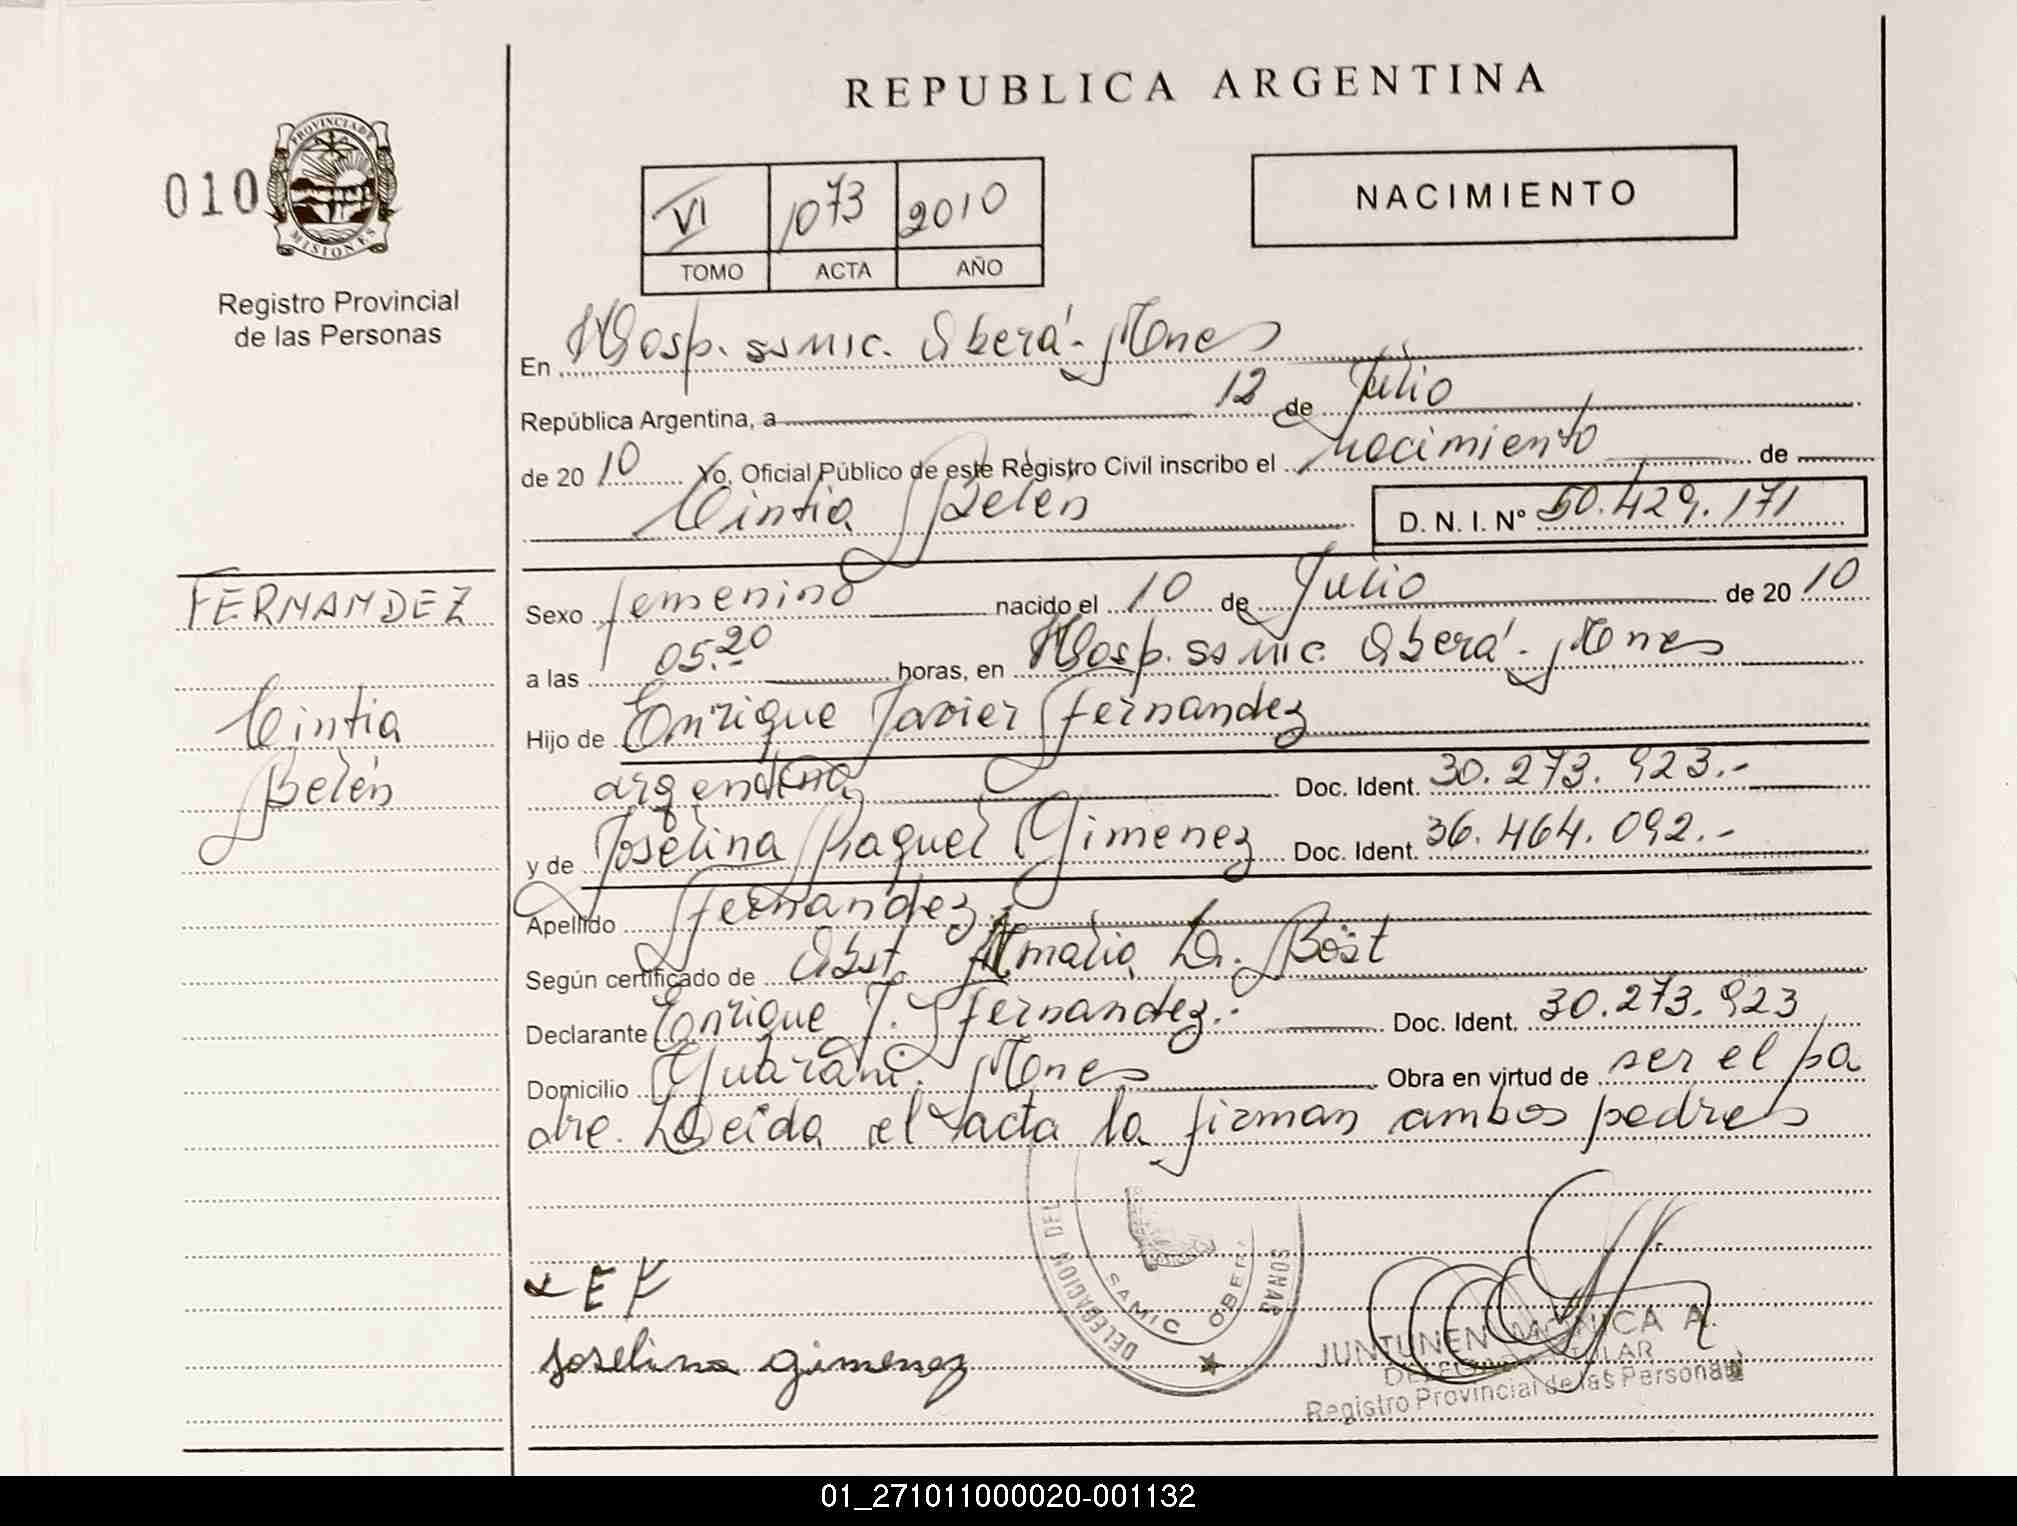 REPUBLICA ARGENTINA
010
PROVINCIA DE
MISIONES
Registro Provincial
de las Personas
VI 1073 2010
TOMO ACTA AÑO
NACIMIENTO
En Hosp. ssmic. Oberá - Mnes
República Argentina, a 12 de Julio
de 20 10 Yo, Oficial Público de este Registro Civil inscribo el nacimiento de
Cintia Belén
D. N. I. Nº 50.429.171
FERNANDEZ
Cintia
Belén
Sexo femenino nacido el 10 de Julio de 20 10
a las 05.20 horas, en Hosp. ssmic. Oberá - Mnes
Hijo de Enrique Javier Fernandez
argentino Doc. Ident. 30.273.923.-
y de Joselina Raquel Gimenez Doc. Ident. 36.464.092.-
Apellido Fernandez
Según certificado de Obst. Amalia Bost
Declarante Enrique J. Fernandez.- Doc. Ident. 30.273.923
Domicilio Guaraní. Mnes Obra en virtud de ser el pa
dre. Leida el acta la firman ambos padres
DELEGACION DEL SONAS
SAMIC OBERA
E F
Joselina gimenez
JUNTUNEN MONICA A.
DELEGADA TITULAR
Registro Provincial de las Personas
01_271011000020-001132